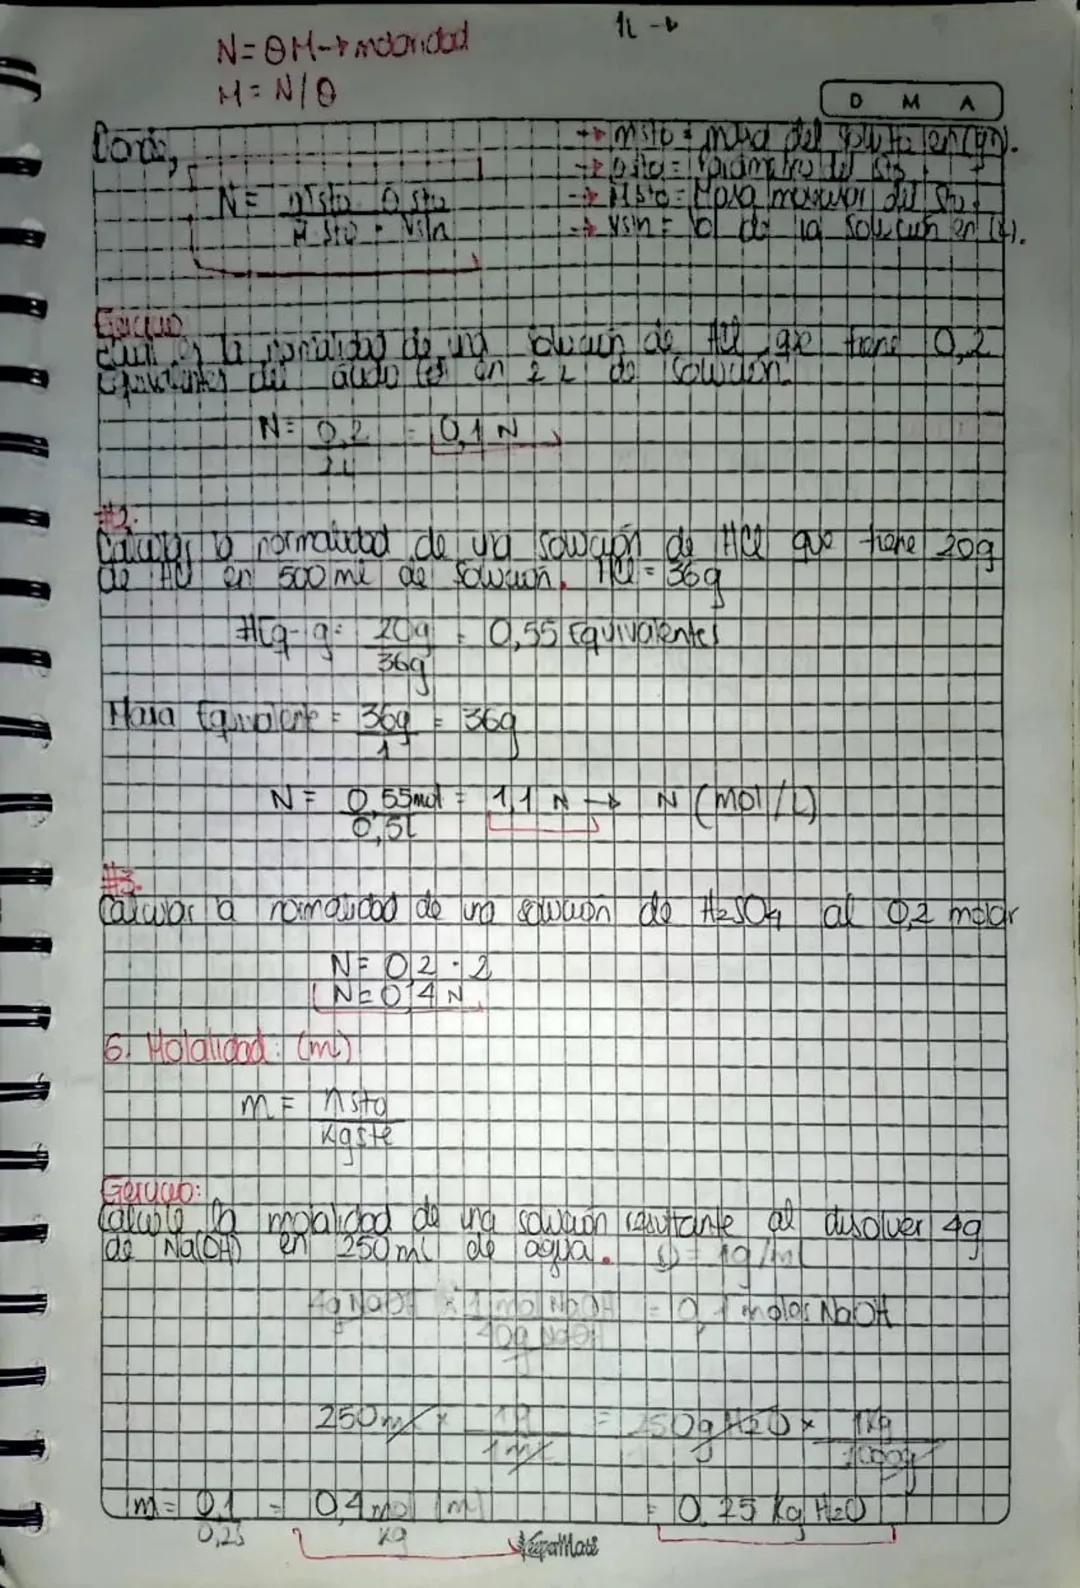 1L →
N = θM → molaridad
M = N/θ
D M A
Donde,
→ msto = masa del soluto en (gr).
→ θsto = Parámetro del Sto.
N = msto · θsto
M sto · Vsln
→ Msto = Masa molecular del Sto.
→ Vsln = de la solución en (L).
Ejercicio
Cuál es la normalidad de una solución de HCl que tiene 0,2
Equivalentes del ácido en 2 L de solución.
N = 0,2 = 0,1 N
2L
#2.
Calcular la normalidad de una solución de HCl que tiene 20g
de HCl en 500 ml de solución. HCl = 36g
#Eq-g = 20g = 0,55 Equivalentes
36g
Masa Equivalente = 36g = 36g
1
N = 0,55mol = 1,1 N → N (mol/L)
0,5L
#3.
Calcular la normalidad de una solución de H2SO4 al 0,2 molar
N = 0,2 · 2
N = 0,4 N
6. Molalidad: (m)
m = nsto
Kgste
Ejercicio:
Calcule la molalidad de una solución resultante al disolver 4g
de Na(OH) en 250 ml de agua. D = 1g/ml
4g NaOH x 1 mol NaOH = 0,1 moles NaOH
40g NaOH
250 ml x 1g = 250g H2O x 1Kg
1ml 1000g
m = 0,1 = 0,4 mol (m) = 0,25 Kg H2O
0,25 Kg
SuperMate